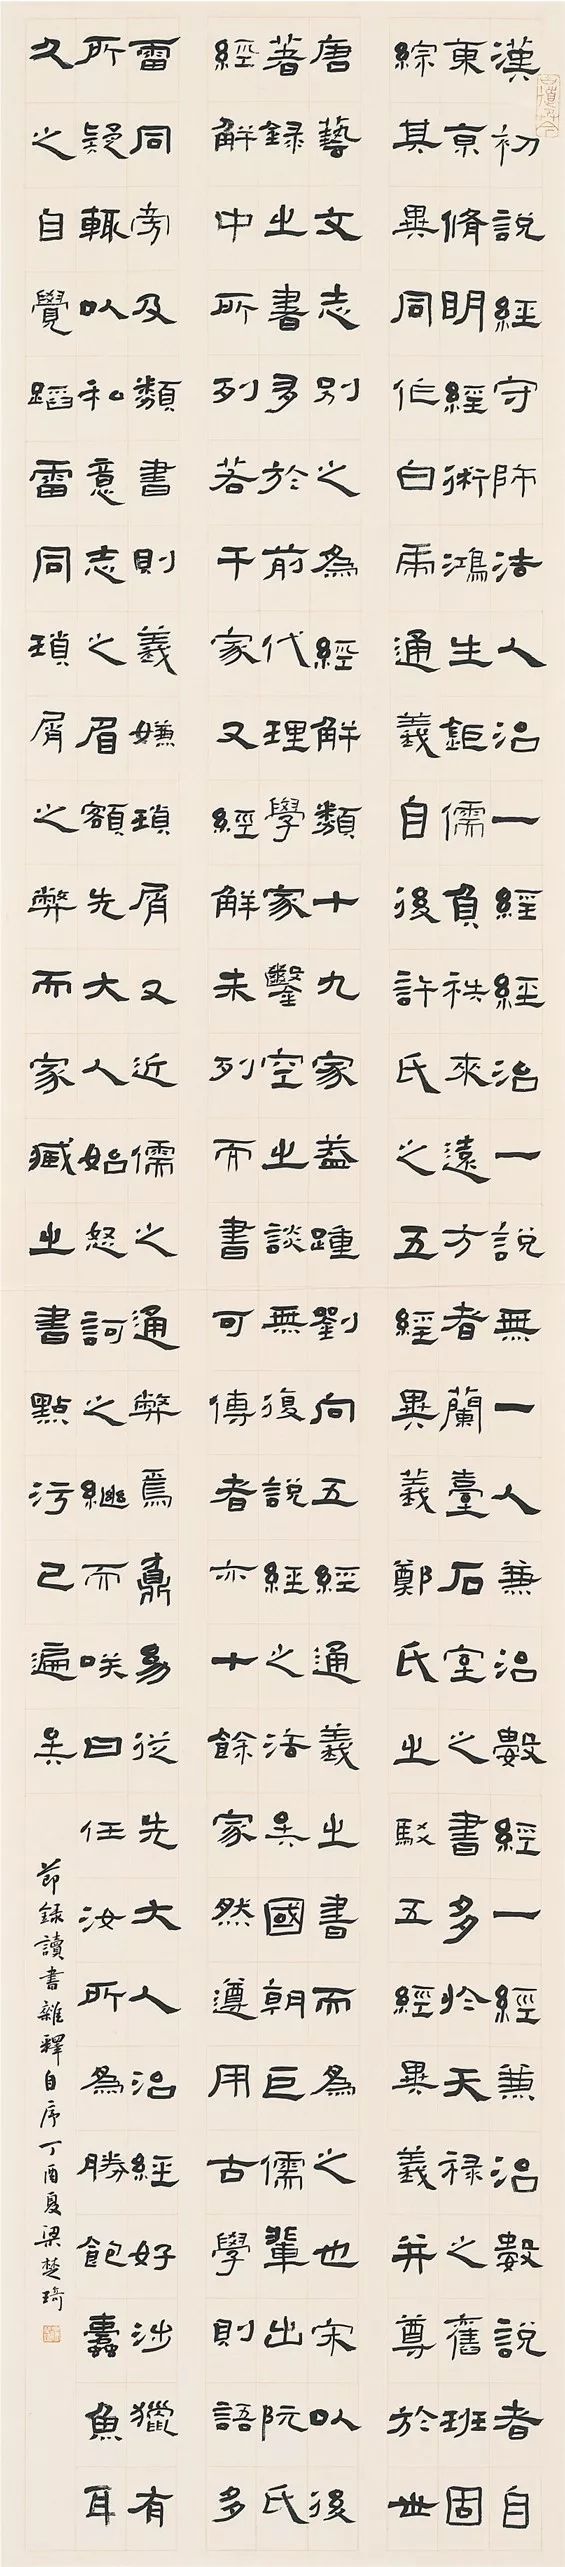 漢初說經守師法人治一經經治一說無一人兼治數經一經兼治數說者自
東京脩明經術鴻生鉅儒負袟來遠方者蘭臺石室之書多於天祿之舊班固
綜其異同作白虎通義自後許氏之五經異義鄭氏之駁五經異義并尊於世
唐藝文志別之為經解類十九家蓋踵劉向五經通義之書而為之也宋以後
著錄之書多於前代理學家鑿空之談無復說經之法矣國朝巨儒輩出阮氏
經解中所列若干家又經解未列而書可傳者亦十餘家然遵用古學則語多
雷同旁及類書則義嫌瑣屑又近儒之通弊焉鼒幼從先大人治經好涉獵有
所疑輒以私意志之眉額先大人始怒訶之繼而咲曰任汝所為勝飽蠹魚耳
久之自覺蹈雷同瑣屑之弊而家藏之書點污已遍矣
節錄讀書雜釋自序丁酉夏梁楚琦